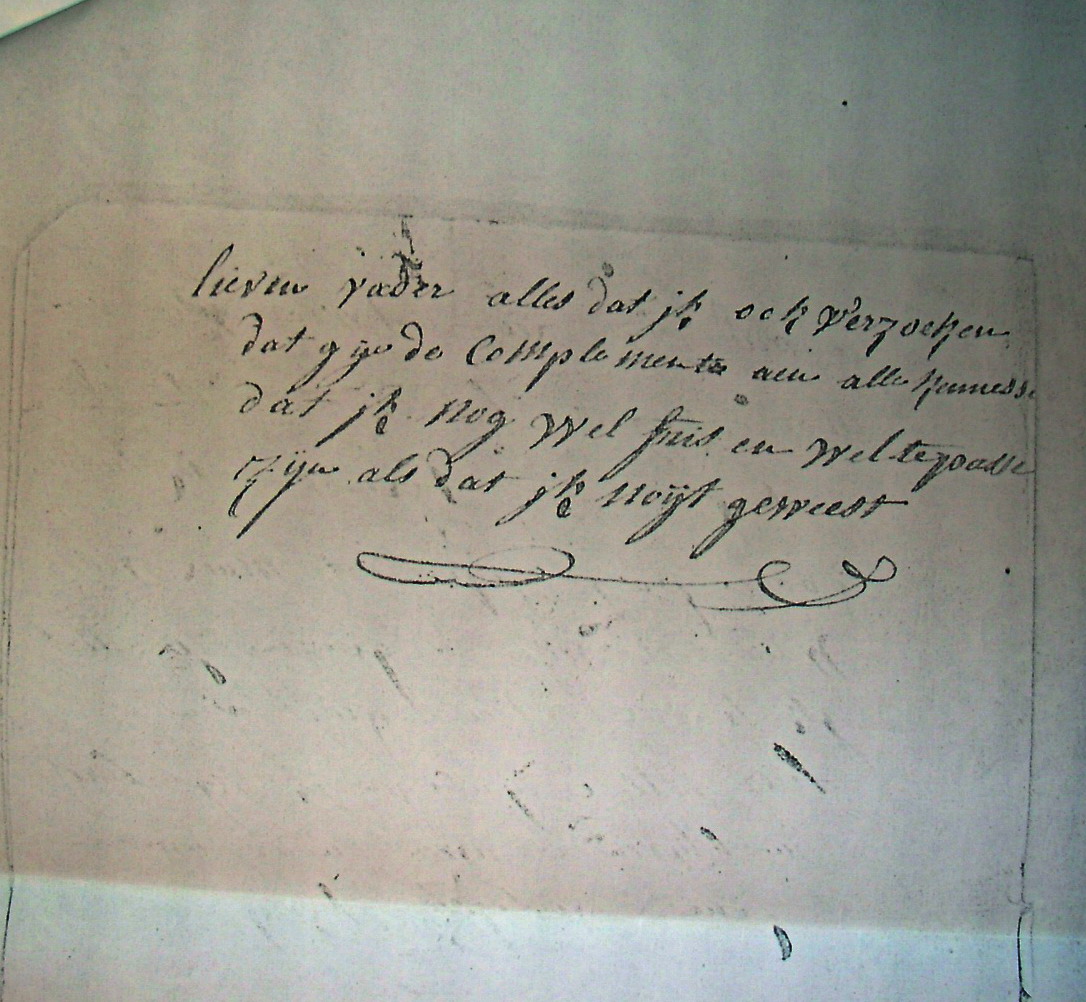 lieven vader alles dat jk ock verzoeken
dat gyu de Complemente aen alle kenness
dat jk nog wel fris en wel te passe
zijn als dat jk noijt geweest